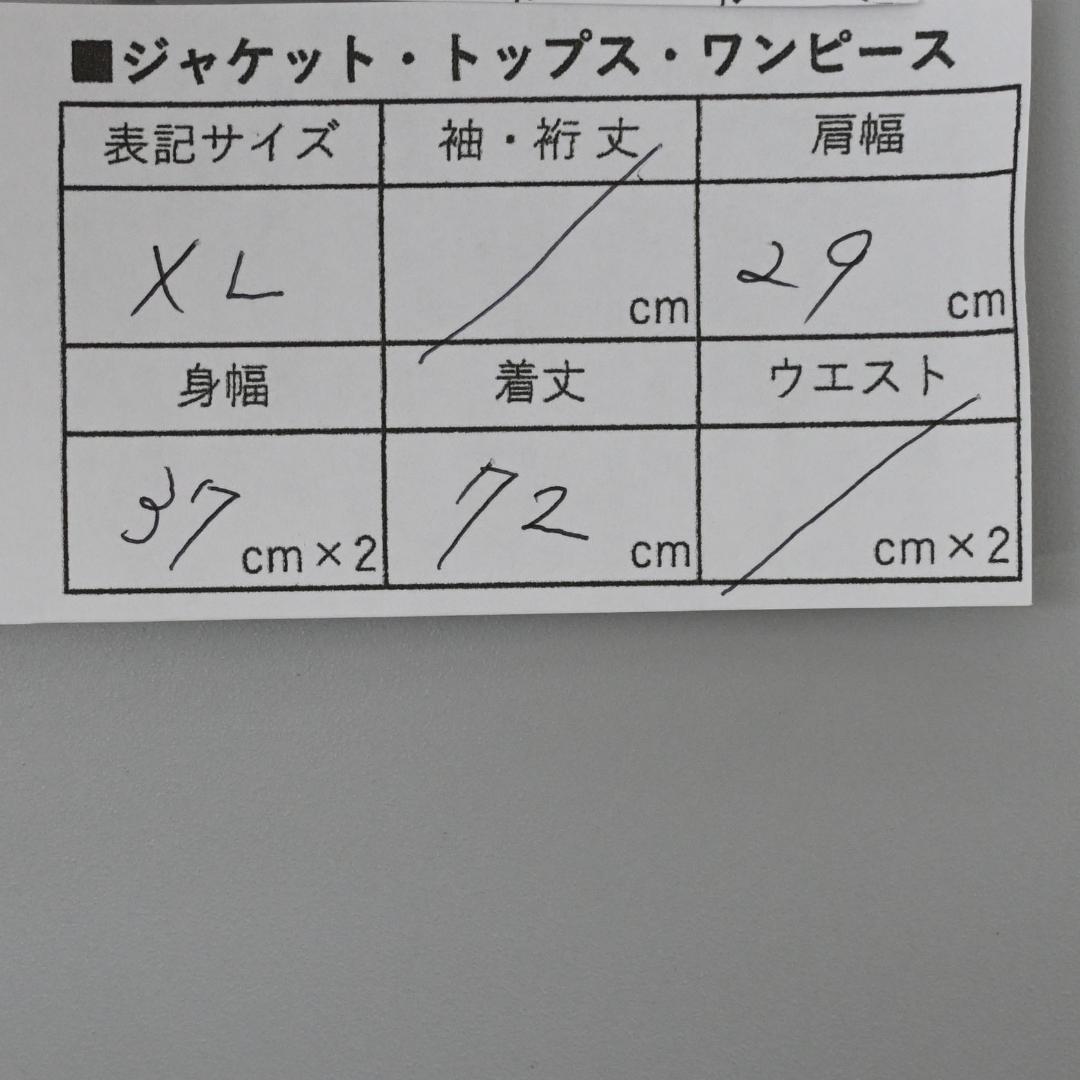 ■ジャケット・トップス・ワンピース
表記サイズ 袖・裄丈 肩幅
XL cm 29 cm
身幅 着丈 ウエスト
37 cm×2 72 cm cm×2